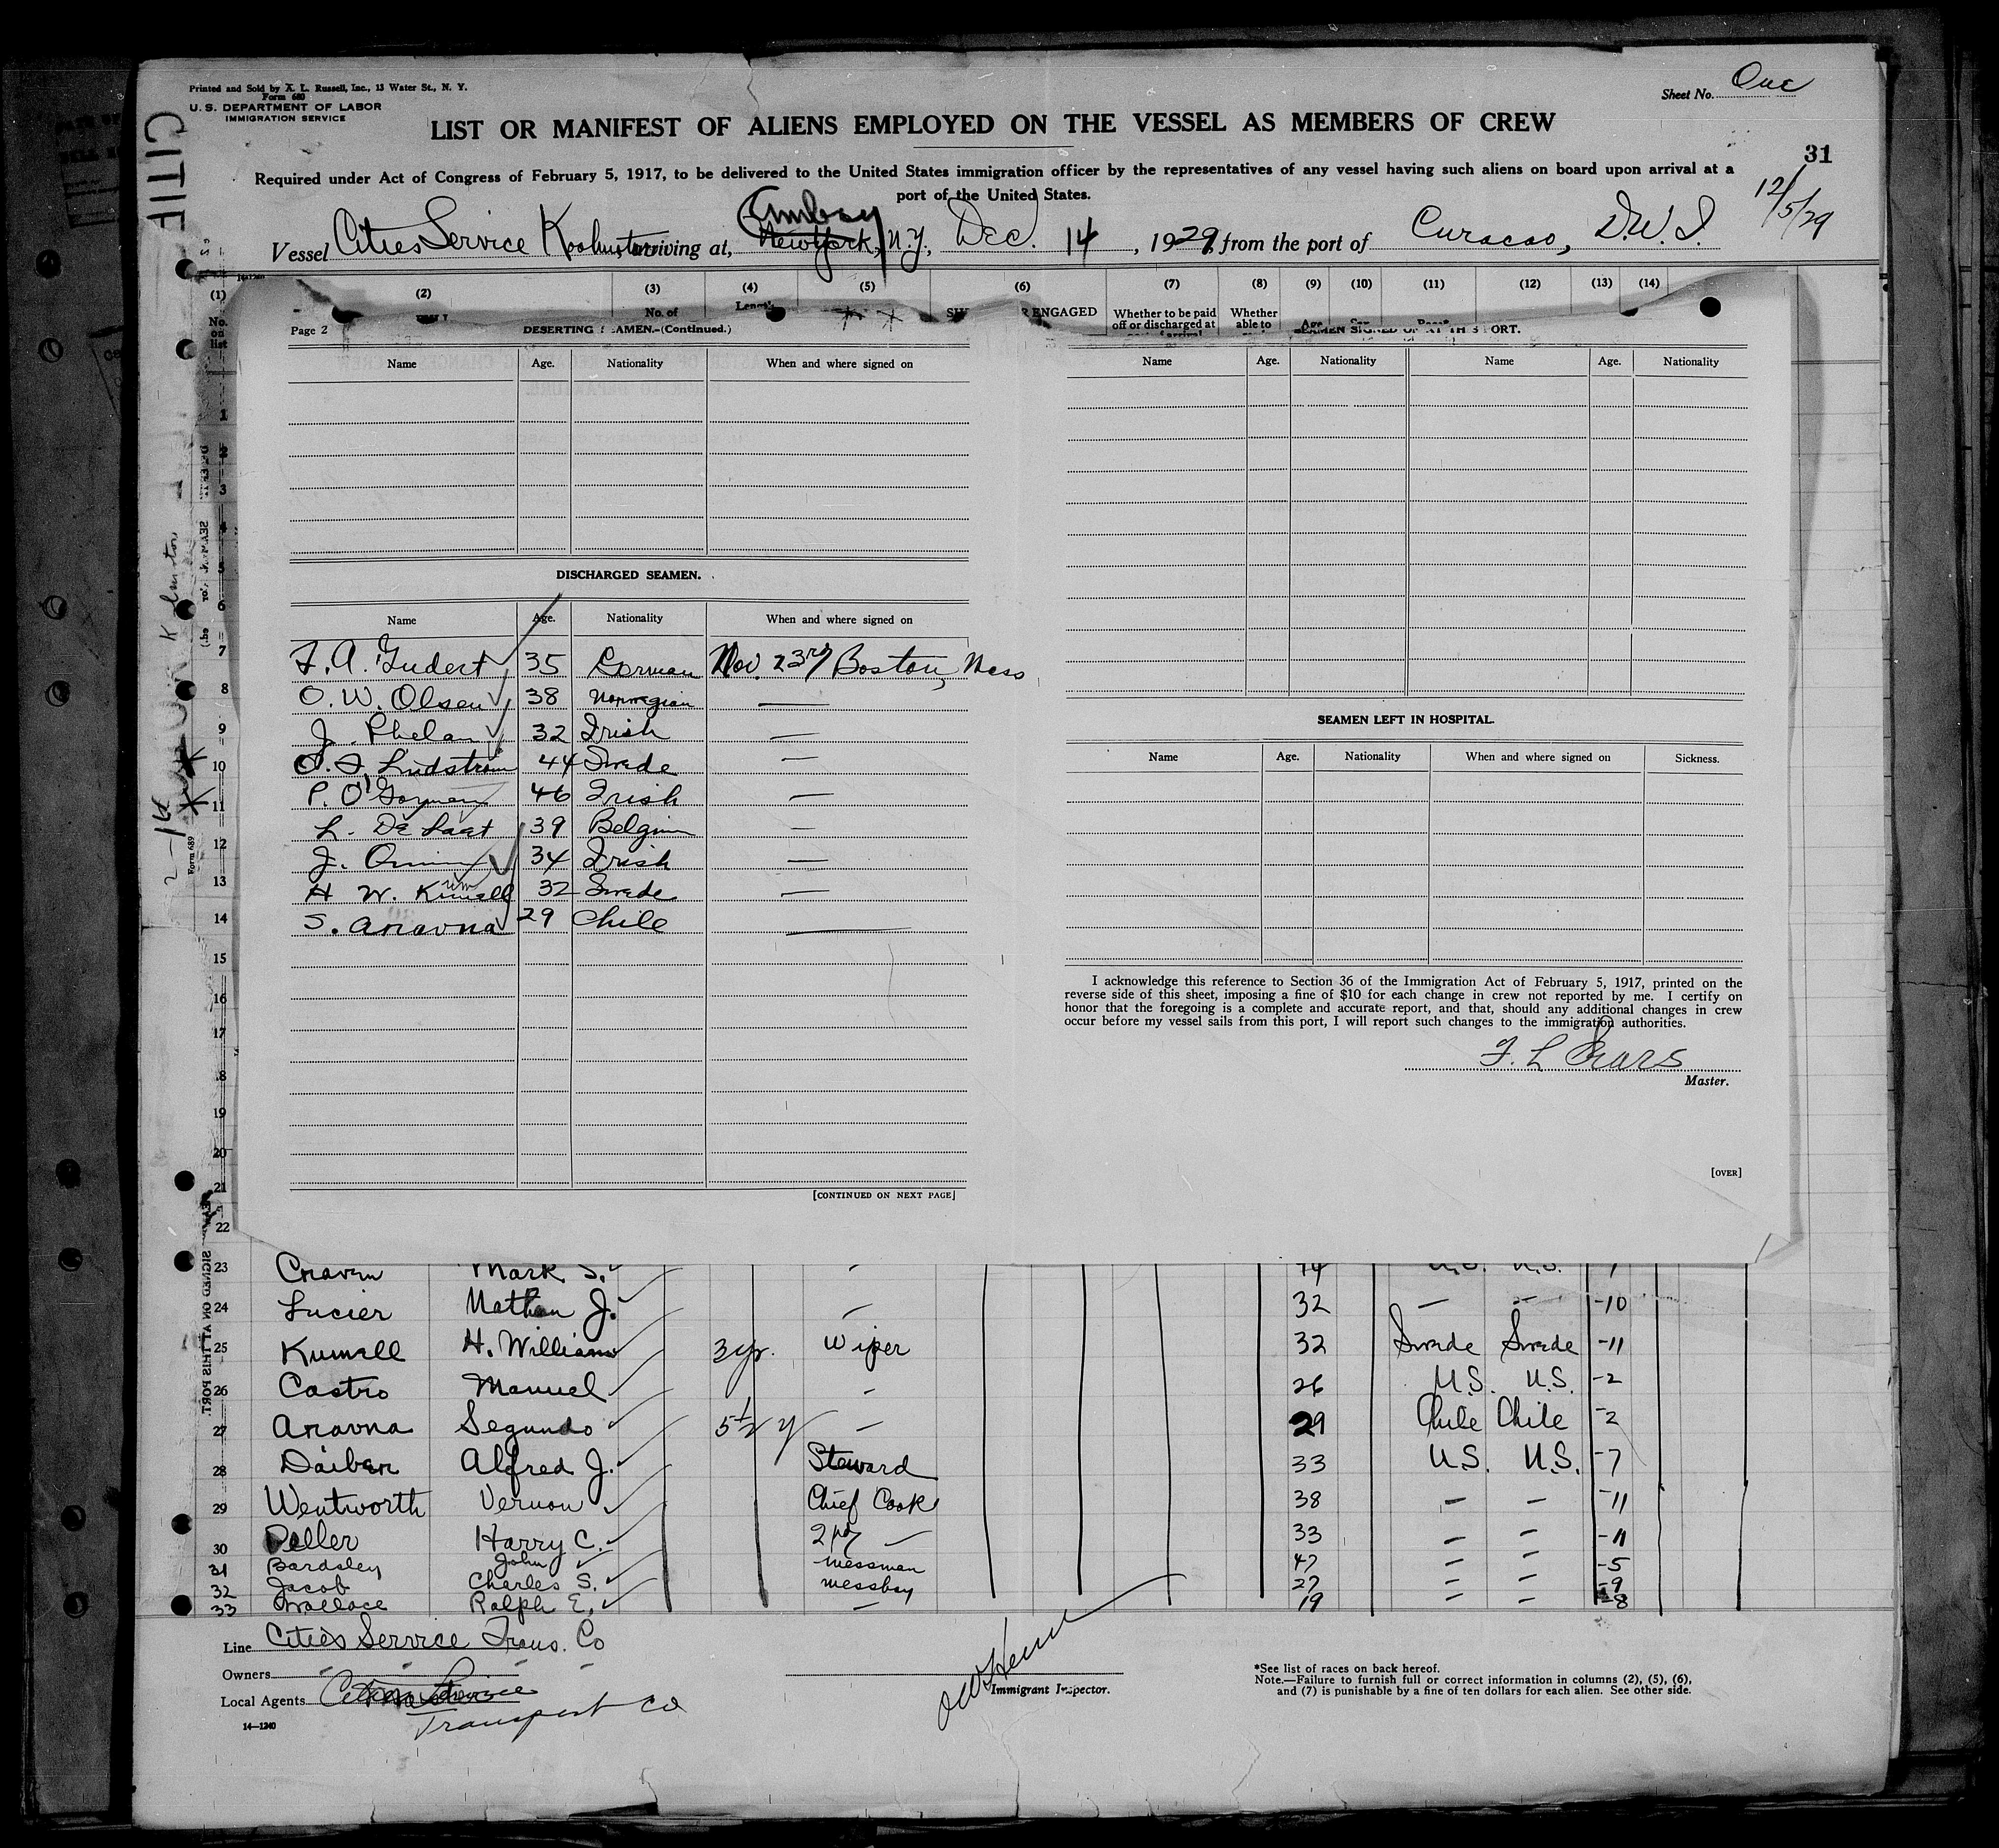 Printed and Sold by X. L. Russell, Inc., 13 Water St., N. Y.
Form 680
U. S. DEPARTMENT OF LABOR
IMMIGRATION SERVICE
Sheet No. One
LIST OR MANIFEST OF ALIENS EMPLOYED ON THE VESSEL AS MEMBERS OF CREW
31
Required under Act of Congress of February 5, 1917, to be delivered to the United States immigration officer by the representatives of any vessel having such aliens on board upon arrival at a
port of the United States.
12/5/29
Amboy
Vessel Cities Service arriving at, New York, N.Y., Dec. 14, 1929, from the port of Curacao, D.W.I.
CITIE
(1) (2) (3) (4) (5) (6) (7) (8) (9) (10) (11) (12) (13) (14)
No. on list
No. of ENGAGED Whether to be paid off or discharged at Whether able to
Page 2 DESERTING SEAMEN.—(Continued.)
Name Age. Nationality When and where signed on
Name Age. Nationality Name Age. Nationality
DISCHARGED SEAMEN.
Name Age. Nationality When and where signed on
F. A. Gudert 35 German Nov. 23rd Boston, Mass
O. W. Olsen 38 Norwegian —
J. Phelan 32 Irish —
Lindstrom 44 Swede —
P. O'Gorman 46 Irish —
L. De Laet 39 Belgium —
J. 34 Irish —
H W. Kumell 32 Swede —
S. Aravna 29 Chile —
[CONTINUED ON NEXT PAGE]
SEAMEN LEFT IN HOSPITAL.
Name Age. Nationality When and where signed on Sickness.
I acknowledge this reference to Section 36 of the Immigration Act of February 5, 1917, printed on the
reverse side of this sheet, imposing a fine of $10 for each change in crew not reported by me. I certify on
honor that the foregoing is a complete and accurate report, and that, should any additional changes in crew
occur before my vessel sails from this port, I will report such changes to the immigration authorities.
F. L.
Master.
[OVER]
Form 689
1
3
4
5
6
7
8
9
10
11
12
13
14
15
16
17
18
19
20
21
22
23 Craven Mark S. —
24 Lucier Nathan J. — 32 — — -10
25 Kumell H. William 3 yr. Wiper 32 Swede Swede -11
26 Castro Manuel — 26 U.S. U.S. -2
27 Aravna Segundo 5½ y — 29 Chile Chile -2
28 Daiber Alfred J. Steward 33 U.S. U.S. -7
29 Wentworth Vernon Chief Cook 38 — — -11
30 Peller Harry C. 2nd — 33 — — -11
31 Bardsley John messman 47 — — -5
32 Jacob Charles S. messboy 27 — — -9
33 Wallace Ralph E. — 19 — — -8
Line Cities Service Trans. Co
Owners — — —
Local Agents Cities Service
Transport Co
Immigrant Inspector.
*See list of races on back hereof.
Note.—Failure to furnish full or correct information in columns (2), (5), (6),
and (7) is punishable by a fine of ten dollars for each alien. See other side.
14—1240